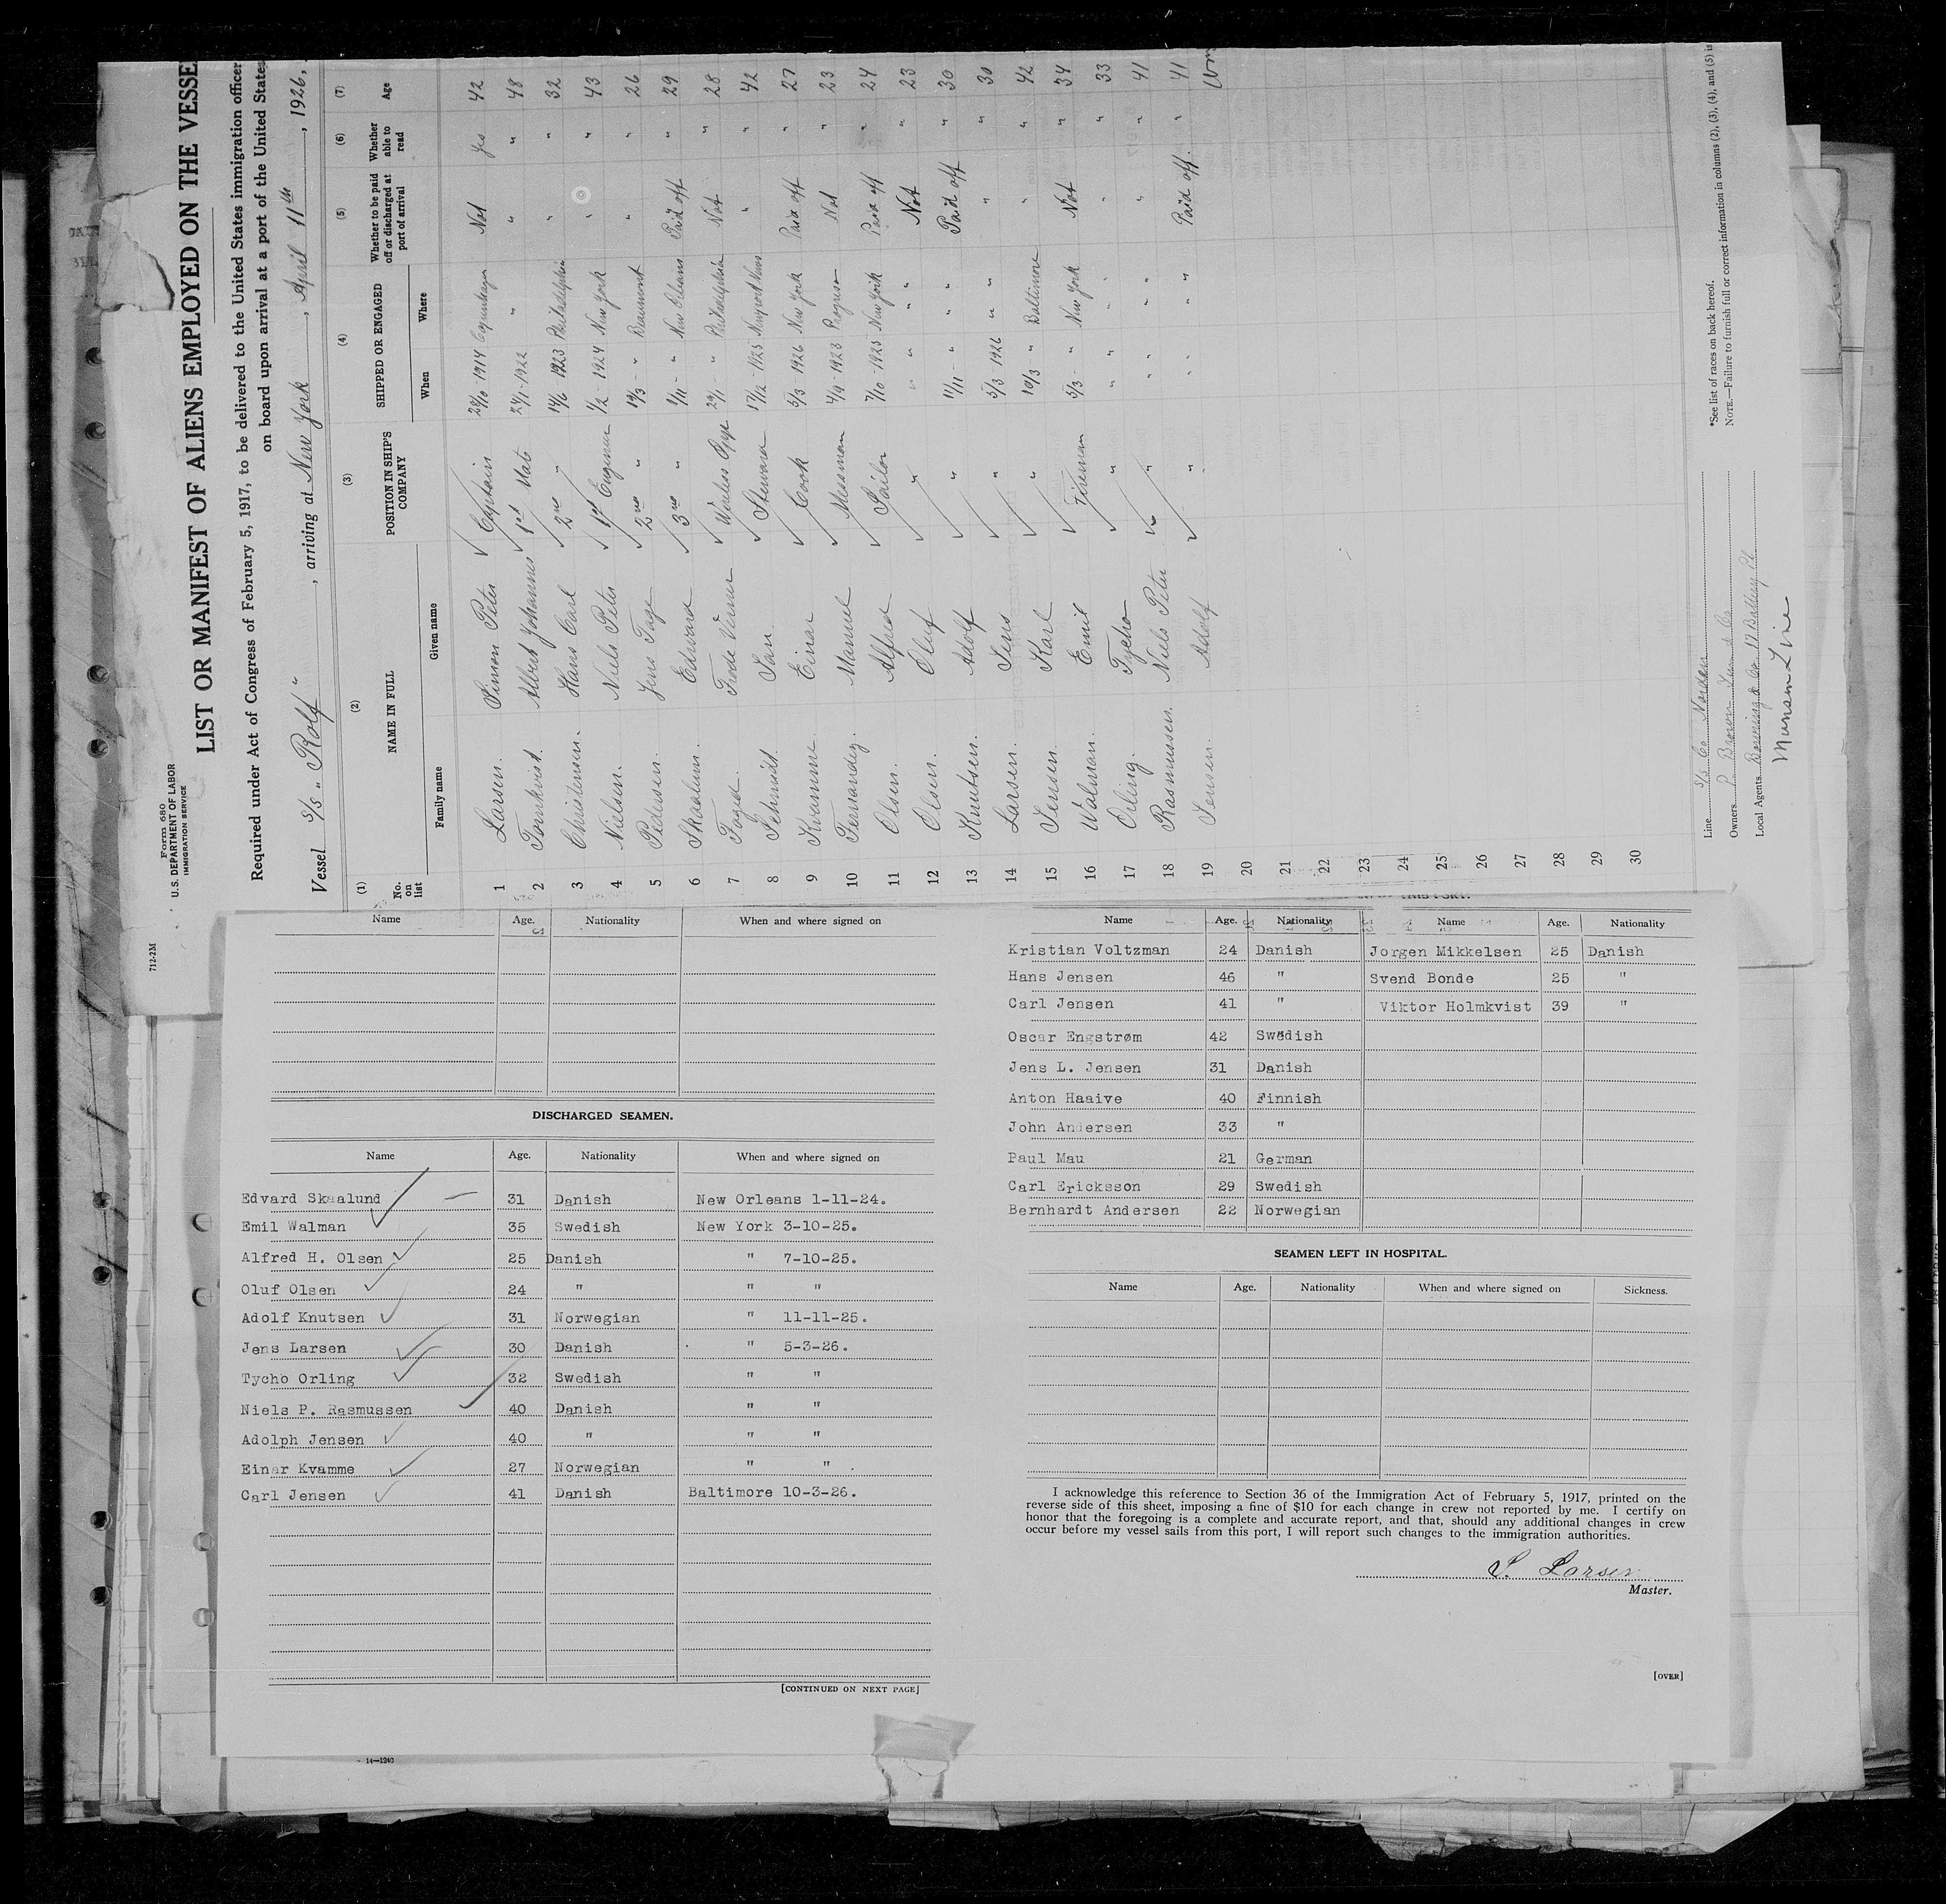 712-2M
Form 680
U.S. DEPARTMENT OF LABOR
IMMIGRATION SERVICE
LIST OR MANIFEST OF ALIENS EMPLOYED ON THE VESSE
Required under Act of Congress of February 5, 1917, to be delivered to the United States immigration officer
on board upon arrival at a port of the United States
Vessel S/S "Rolf" , arriving at New York , April 11th , 1926,
(1) (2) (3) (4) (5) (6) (7)
No. on list NAME IN FULL POSITION IN SHIP'S COMPANY SHIPPED OR ENGAGED Whether to be paid off or discharged at port of arrival Whether able to read Age
Family name Given name When Where
1 Larsen. Simon Peter Captain 28/10-1914 Copenhagen Not Yes 42
2 Tornkvist. Albert Johannes 1st Mate 24/1-1922 " " " 48
3 Christensen. Hans Carl 2nd " 14/6 1923 Philadelphia " " 32
4 Nielsen. Niels Peter 1st Engineer 1/2-1924 New York " " 43
5 Pedersen. Jens Tage 2nd " 19/3- " Beaumont " " 26
6 Skaalum. Edward 3rd " 1/11- " New Orleans Paid off " 29
7 Foged. Frode Verner Wireless Opr 29/1- " Philadelphia Not " 28
8 Schmidt. Jan. Steward 17/12-1925 Newport News " " 42
9 Kvamme Einar Cook 5/3 1926 New York Paid off " 27
10 Fernandez. Manuel Messman 4/9-1923 Progreso Not " 23
11 Olsen. Alfred Sailor 7/10-1925 New York Paid off " 24
12 Olsen. Oluf " " " " Not " 23
13 Knutsen. Adolf " 11/11- " " Paid off " 30
14 Larsen. Jens " 5/3 1926 " " " 30
15 Jensen. Karl " 10/3- " Baltimore " " 42
16 Walman. Emil Fireman 5/3- " New York Not " 34
17 Orling. Tycho " " " " " 33
18 Rasmussen. Niels Peter " " " " " 41
19 Jensen. Adolf " " " Paid off. " 41
20
21
22
23
24
25
26
27
28
29
30
Line S/S Co Norden
Owners P. Brown Jun & Co
Local Agents Bowring & Co. 17 Battery Pl
Munson Line
*See list of races on back hereof.
NOTE.—Failure to furnish full or correct information in columns (2), (3), (4), and (5) is
Name Age. Nationality When and where signed on
DISCHARGED SEAMEN.
Name Age. Nationality When and where signed on
Edvard Skaalund 31 Danish New Orleans 1-11-24.
Emil Walman 35 Swedish New York 3-10-25.
Alfred H. Olsen 25 Danish " 7-10-25.
Oluf Olsen 24 " " "
Adolf Knutsen 31 Norwegian " 11-11-25.
Jens Larsen 30 Danish " 5-3-26.
Tycho Orling 32 Swedish " "
Niels P. Rasmussen 40 Danish " "
Adolph Jensen 40 " " "
Einar Kvamme 27 Norwegian " " .
Carl Jensen 41 Danish Baltimore 10-3-26.
[CONTINUED ON NEXT PAGE]
14—1240
Name Age. Nationality Name Age. Nationality
Kristian Voltzman 24 Danish Jorgen Mikkelsen 25 Danish
Hans Jensen 46 " Svend Bonde 25 "
Carl Jensen 41 " Viktor Holmkvist 39 "
Oscar Engstrøm 42 Swedish
Jens L. Jensen 31 Danish
Anton Haaive 40 Finnish
John Andersen 33 "
Paul Mau 21 German
Carl Ericksson 29 Swedish
Bernhardt Andersen 22 Norwegian
SEAMEN LEFT IN HOSPITAL.
Name Age. Nationality When and where signed on Sickness.
I acknowledge this reference to Section 36 of the Immigration Act of February 5, 1917, printed on the
reverse side of this sheet, imposing a fine of $10 for each change in crew not reported by me. I certify on
honor that the foregoing is a complete and accurate report, and that, should any additional changes in crew
occur before my vessel sails from this port, I will report such changes to the immigration authorities.
S. Larsen
Master.
[OVER]